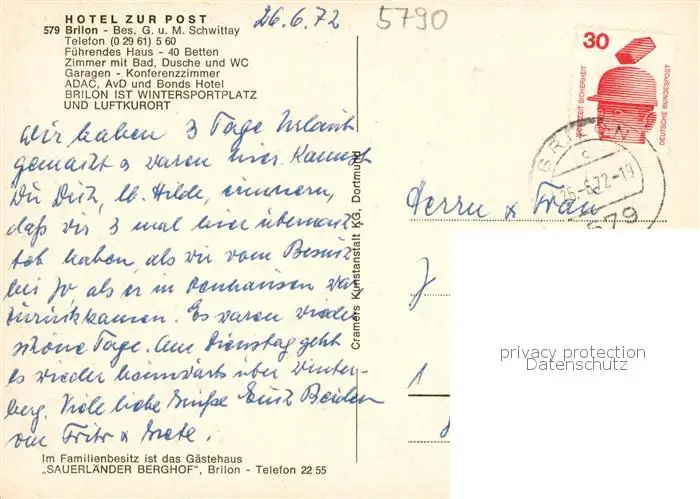 HOTEL ZUR POST
579 Brilon - Bes. G. u. M. Schwittay
Telefon (0 29 61) 5 60
Führendes Haus - 40 Betten
Zimmer mit Bad, Dusche und WC
Garagen - Konferenzzimmer
ADAC, AvD und Bonds Hotel
BRILON IST WINTERSPORTPLATZ
UND LUFTKURORT
26.6.72
5790
30
JEDERZEIT SICHERHEIT
DEUTSCHE BUNDESPOST
BRILON
c
-6.72-19
579
Wir haben 3 Tage Urlaub
gemacht u waren hier. Kannst
Du Dich, lb. Hilde, erinnern,
daß wir 3 mal hier übernach-
tet haben, als wir vom Besuch
bei Jo, als er in war,
zurückkamen. Es waren wieder
schöne Tage. Am Dienstag geht
es wieder heimwärts über Winter-
berg. Viele liebe Grüße Euch Beiden
von Fritz u Grete.
Cramers Kunstanstalt KG, Dortmund
Herrn u Frau
J
1
privacy protection
Datenschutz
Im Familienbesitz ist das Gästehaus
„SAUERLÄNDER BERGHOF", Brilon - Telefon 22 55